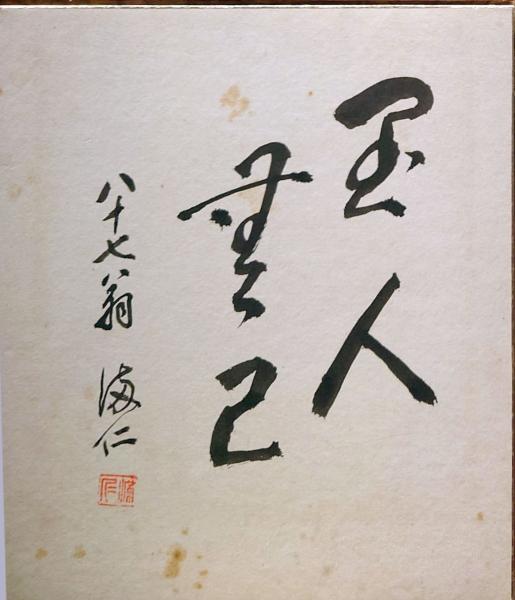 聖人
無己
八十七翁 海仁